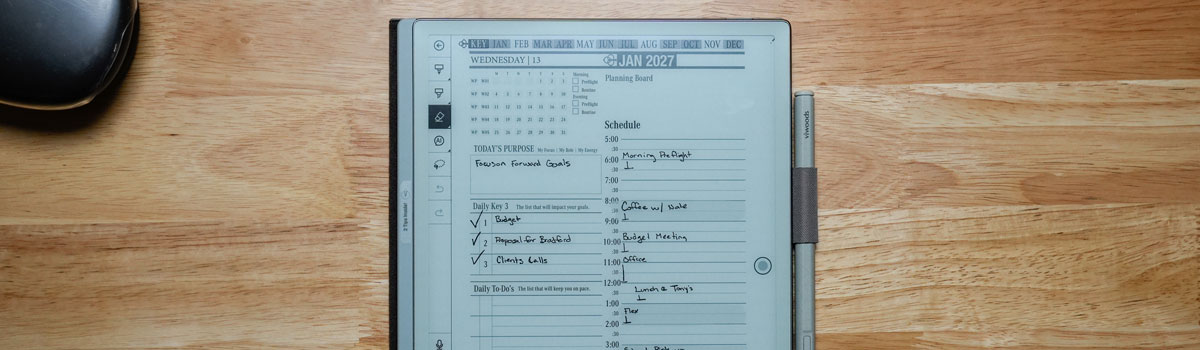 KEY JAN FEB MAR APR MAY JUN JUL AUG SEP OCT NOV DEC
WEDNESDAY | 13
JAN 2027
M T W T F S S
WP W01 1 2 3
WP W02 4 5 6 7 8 9 10
WP W03 11 12 13 14 15 16 17
WP W04 18 19 20 21 22 23 24
WP W05 25 26 27 28 29 30 31
Morning
Preflight
Routine
Evening
Preflight
Routine
TODAY'S PURPOSE My Focus | My Role | My Energy
Focus on Forward Goals
Daily Key 3 The list that will impact your goals.
1 Budget
2 Proposal for Bradford
3 Clients Calls
Daily To-Do's The list that will keep you on pace.
Planning Board
Schedule
5:00
:30 Morning Preflight
6:00
:30
7:00
:30
8:00 Coffee w/ Nate
:30
9:00
:30 Budget Meeting
10:00
:30
11:00 Office
:30
12:00
:30 Lunch @ Tony's
1:00
:30 Flex
2:00
:30
3:00
AI
viwoods